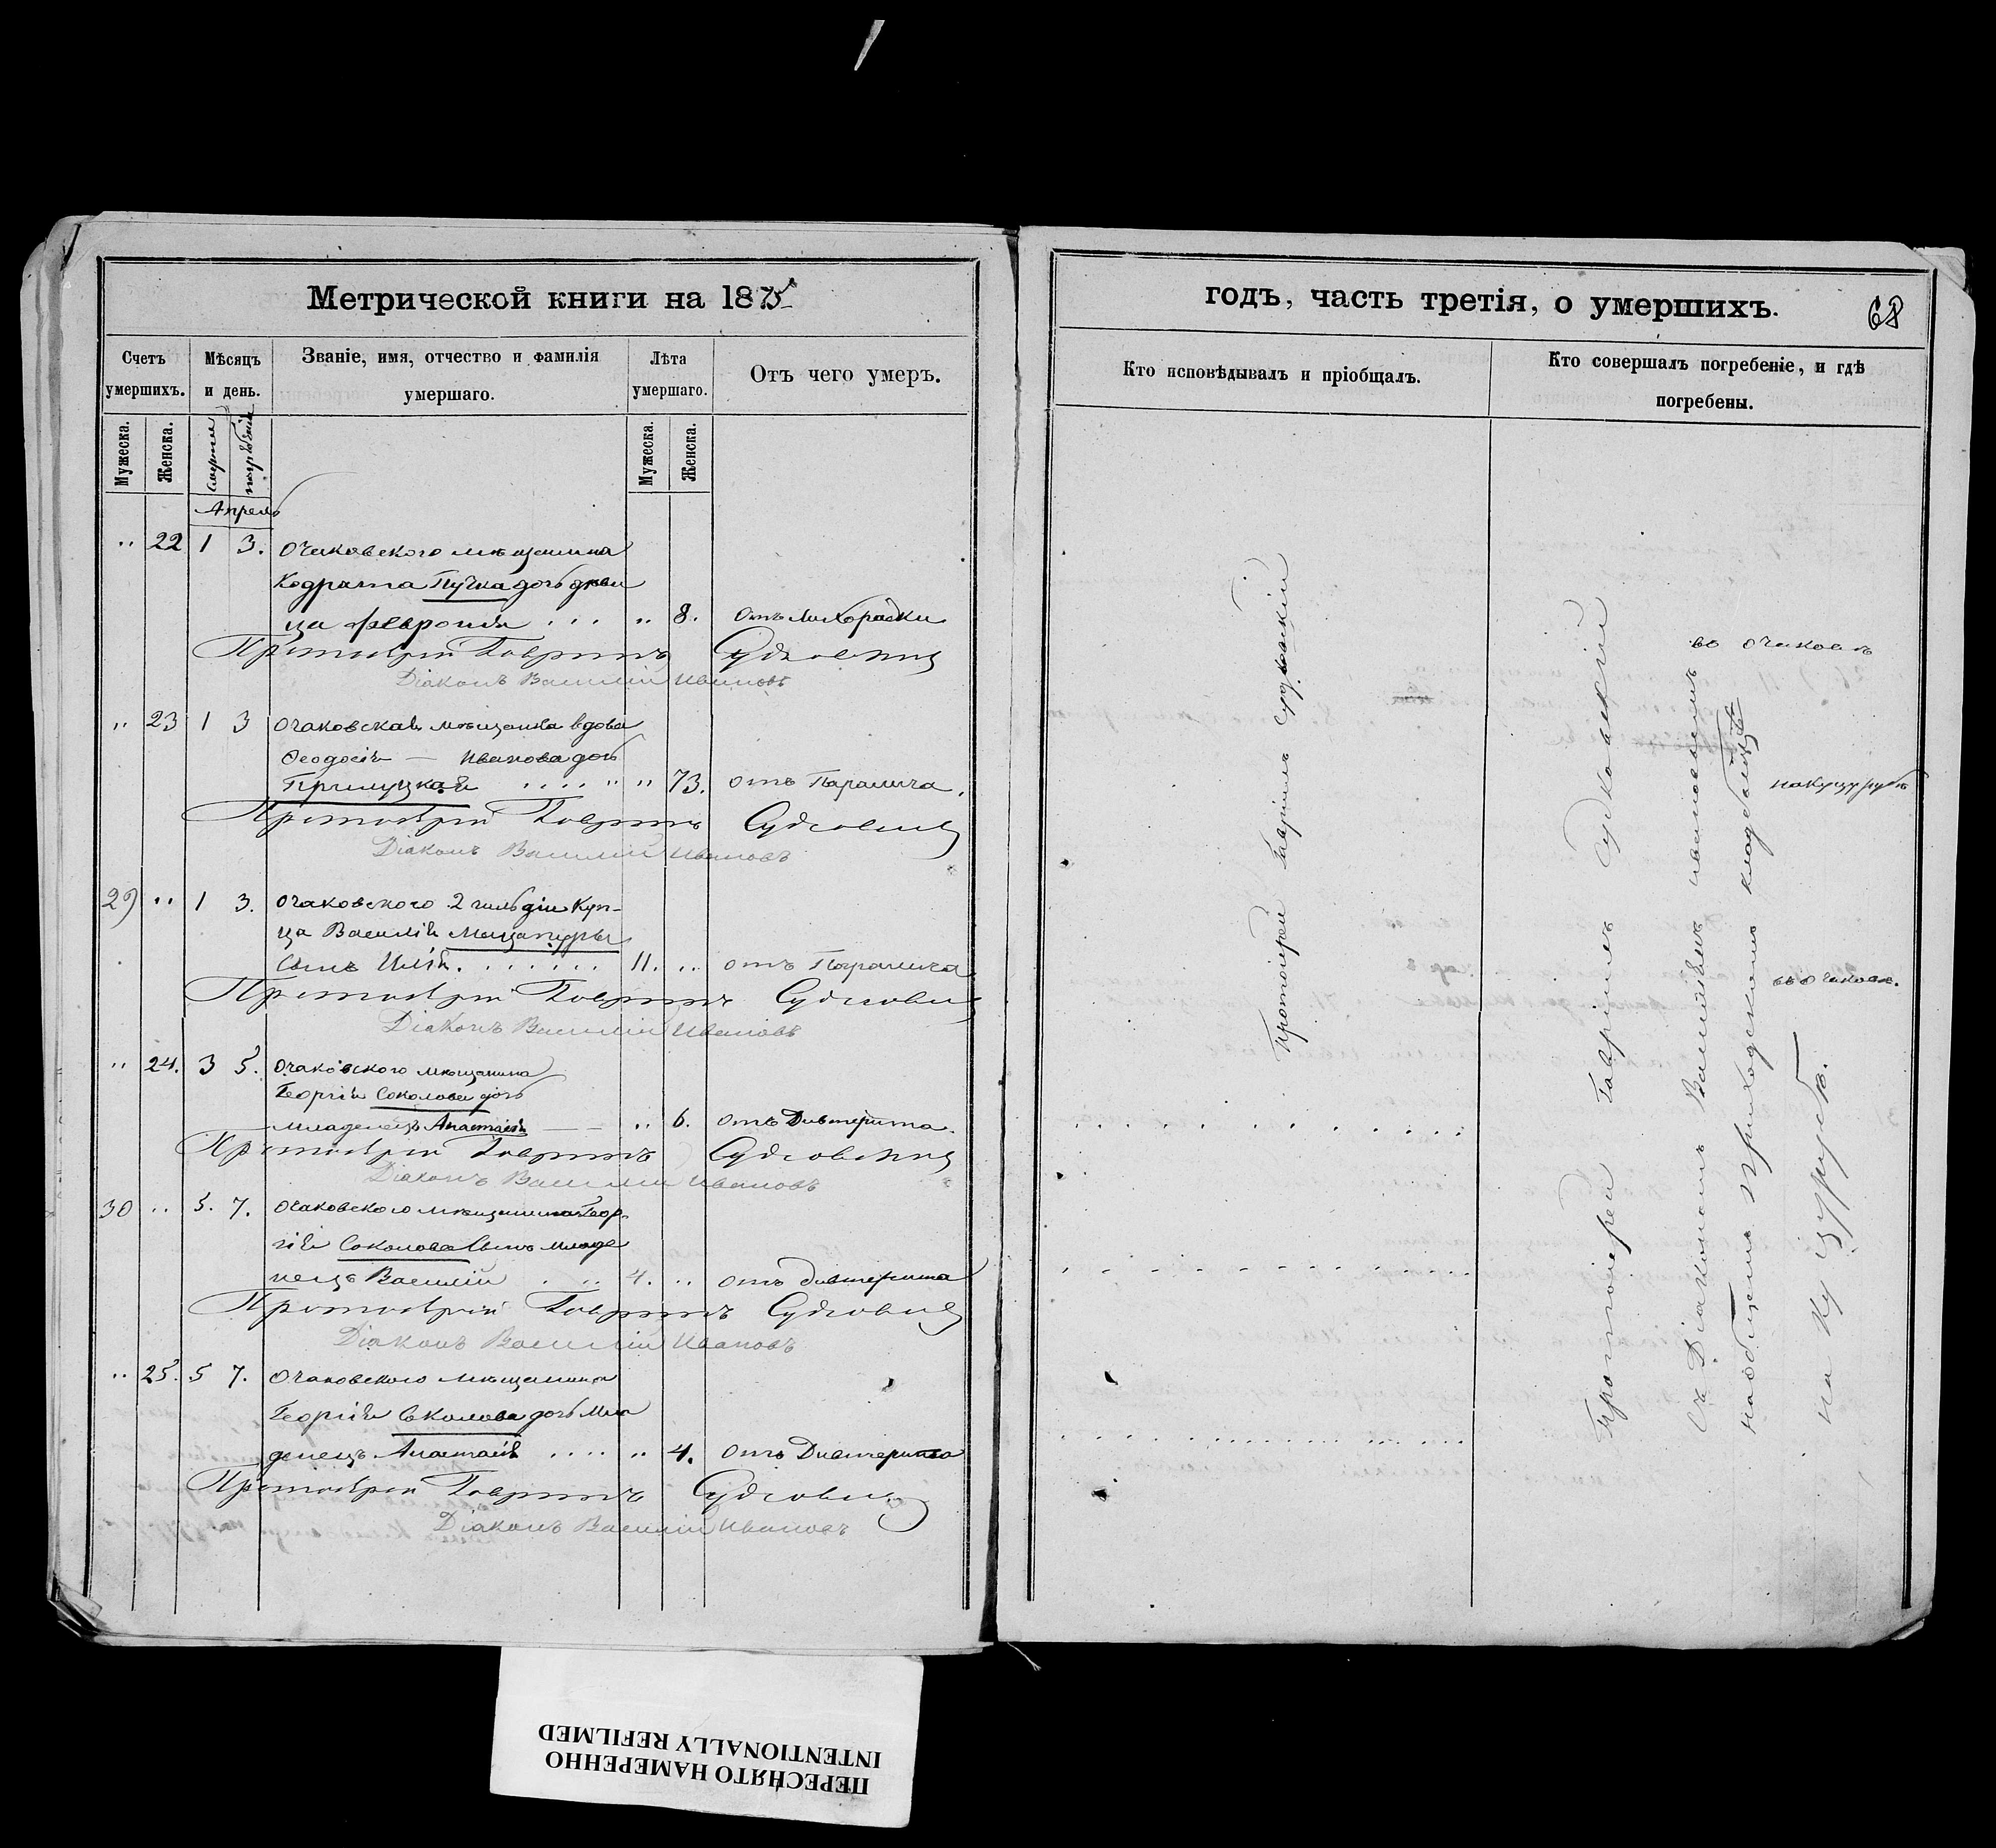 Метрической книги на 1875
Счетъ умершихъ.
Мѣсяцъ и день.
Званіе, имя, отчество и фамилія умершаго.
Лѣта умершаго.
Отъ чего умеръ.
Мужеска.
Женска.
смерти
погребенія
Мужеска.
Женска.
Апрель
" 22 1 3. Очаковского мѣщанина
Кодрата Пучка дочь дѣви
ца Феврония . . . " 8. отъ лихорадки
Протоіерей Гавріилъ Судковскій
Діаконъ Василій Ивановъ
" 23 1 3 Очаковская мѣщанка вдова
Феодосія — Иванова дочь
Прилуцкая . . . . " " 73. отъ Паралича.
Протоіерей Гавріилъ Судковскій
Діаконъ Василій Ивановъ
29 " 1 3. Очаковского 2 гильдіи Куп-
ца Василія
Сынъ Илія. . . . . . . 11. " отъ Паралича
Протоіерей Гавріилъ Судковскій
Діаконъ Василій Ивановъ
" 24. 3 5. Очаковского мѣщанина
Георгія Соколова дочь
младенецъ Анастасія — — " 6. отъ Дивтерита.
Протоіерей Гавріилъ Судковскій
Діаконъ Василій Ивановъ
30 " 5. 7. Очаковского мѣщанина Геор-
гія Соколова Сынъ младе
нецъ Василій . . . 4. " отъ дивтерита
Протоіерей Гавріилъ Судковскій
Діаконъ Василій Ивановъ
" 25. 5 7. Очаковского мѣщанина
Георгія Соколова дочь Мла
денецъ Анастасія . . . . " 4. отъ Дивтерита
Протоіерей Гавріилъ Судковскій
Діаконъ Василій Ивановъ
годъ, часть третія, о умершихъ.
68
Кто исповѣдывалъ и пріобщалъ.
Кто совершалъ погребеніе, и гдѣ
погребены.
Протоіерей Гавріилъ Судковскій
Протоіерей Гавріилъ Судковскій
съ Діакономъ Василіемъ Ивановымъ
на общемъ приходскомъ кладбищѣ
во Очаковѣ
на Куцурубѣ
въ Очаковѣ.
на Куцурубѣ.
ПЕРЕСНЯТО НАМЕРЕННО
INTENTIONALLY REFILMED